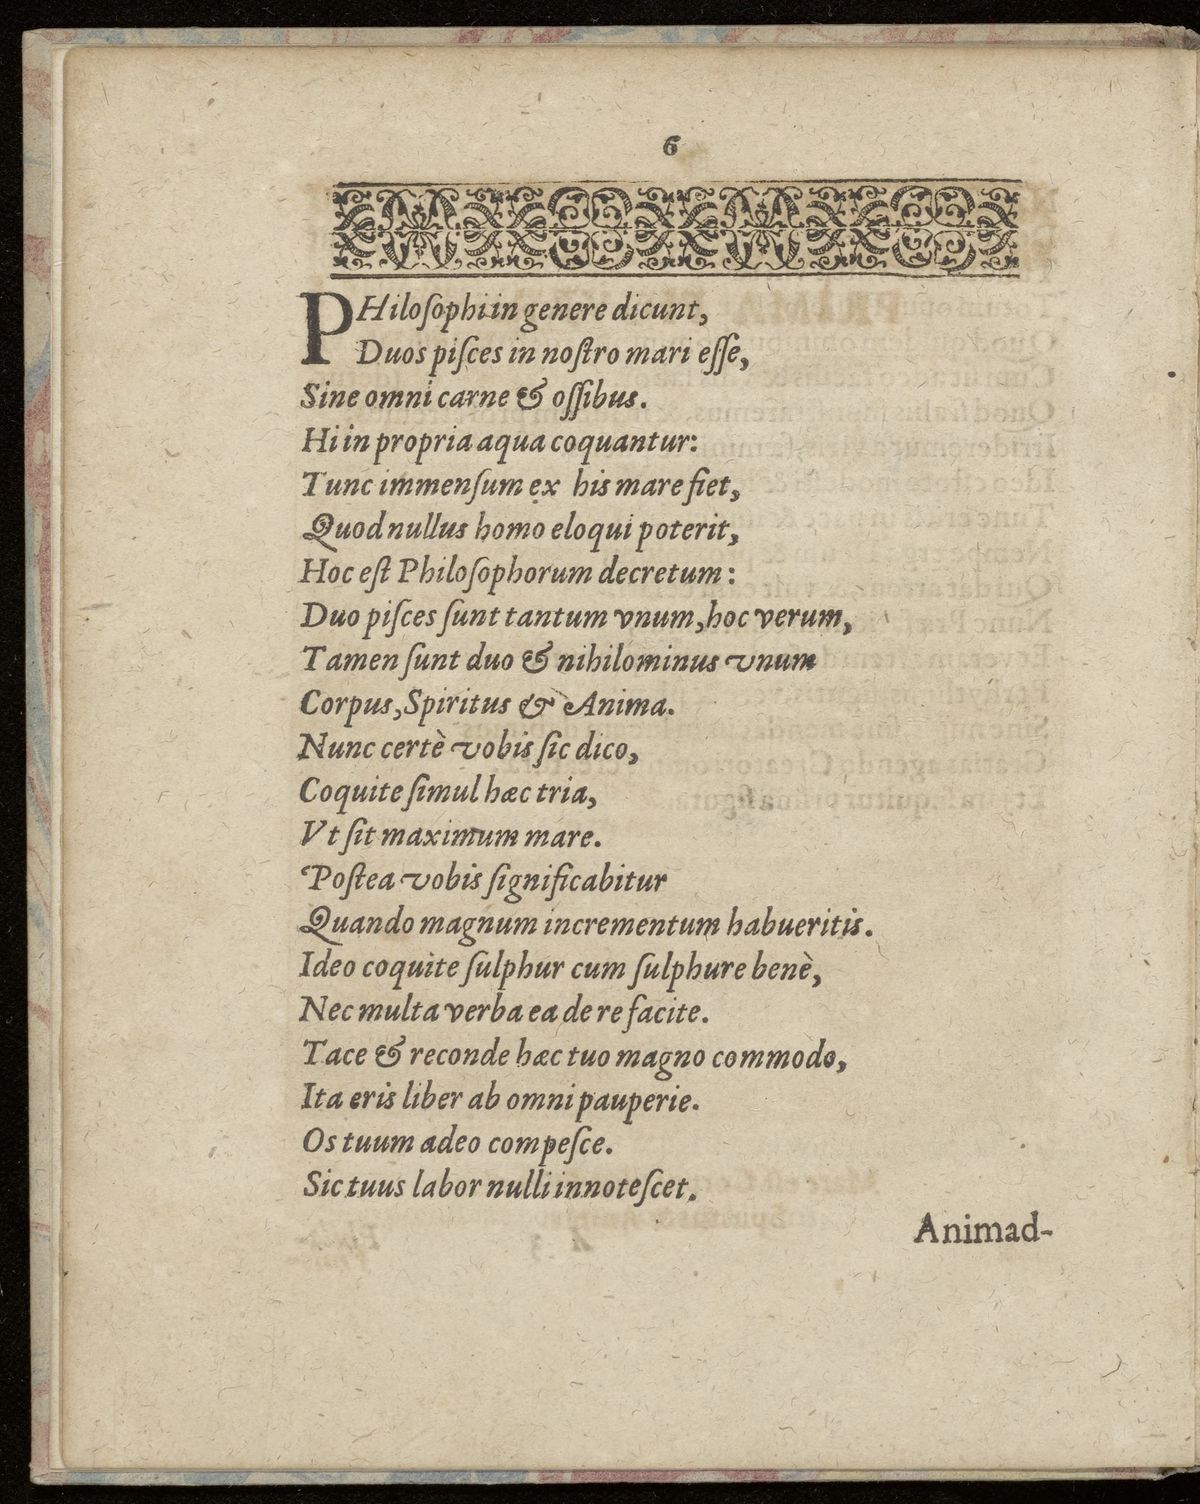 6
PHiloſophi in genere dicunt,
Duos piſces in noſtro mari eſſe,
Sine omni carne & oſſibus.
Hi in propria aqua coquantur:
Tunc immenſum ex his mare fiet,
Quod nullus homo eloqui poterit,
Hoc eſt Philoſophorum decretum:
Duo piſces ſunt tantum vnum, hoc verum,
Tamen ſunt duo & nihilominus vnum
Corpus, Spiritus & Anima.
Nunc certè vobis ſic dico,
Coquite ſimul hæc tria,
Vt ſit maximum mare.
Poſtea vobis ſignificabitur
Quando magnum incrementum habueritis.
Ideo coquite ſulphur cum ſulphure benè,
Nec multa verba ea de re facite.
Tace & reconde hæc tuo magno commodo,
Ita eris liber ab omni pauperie.
Os tuum adeo compeſce.
Sic tuus labor nulli innoteſcet.
Animad-